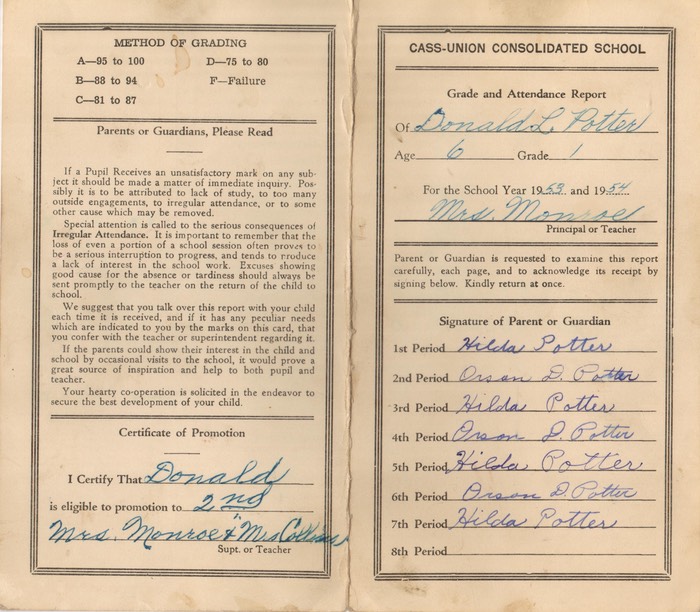 METHOD OF GRADING
A—95 to 100 D—75 to 80
B—88 to 94 F—Failure
C—81 to 87
Parents or Guardians, Please Read
If a Pupil Receives an unsatisfactory mark on any sub-
ject it should be made a matter of immediate inquiry. Pos-
sibly it is to be attributed to lack of study, to too many
outside engagements, to irregular attendance, or to some
other cause which may be removed.
Special attention is called to the serious consequences of
Irregular Attendance. It is important to remember that the
loss of even a portion of a school session often proves to
be a serious interruption to progress, and tends to produce
a lack of interest in the school work. Excuses showing
good cause for the absence or tardiness should always be
sent promptly to the teacher on the return of the child to
school.
We suggest that you talk over this report with your child
each time it is received, and if it has any peculiar needs
which are indicated to you by the marks on this card, that
you confer with the teacher or superintendent regarding it.
If the parents could show their interest in the child and
school by occasional visits to the school, it would prove a
great source of inspiration and help to both pupil and
teacher.
Your hearty co-operation is solicited in the endeavor to
secure the best development of your child.
Certificate of Promotion
I Certify That Donald
is eligible to promotion to 2nd
Mrs. Monroe & Mrs Collins
Supt. or Teacher
CASS-UNION CONSOLIDATED SCHOOL
Grade and Attendance Report
Of Donald L. Potter
Age 6 Grade 1
For the School Year 1953 and 1954
Mrs. Monroe
Principal or Teacher
Parent or Guardian is requested to examine this report
carefully, each page, and to acknowledge its receipt by
signing below. Kindly return at once.
Signature of Parent or Guardian
1st Period Hilda Potter
2nd Period Orson D. Potter
3rd Period Hilda Potter
4th Period Orson D. Potter
5th Period Hilda Potter
6th Period Orson D. Potter
7th Period Hilda Potter
8th Period